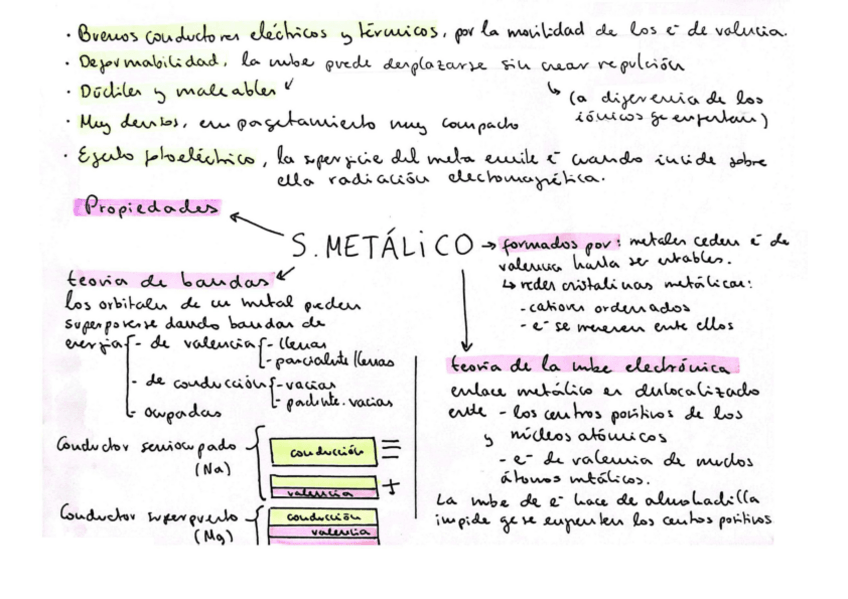 · Buenos conductores eléctricos y térmicos, por la movilidad de los e⁻ de valencia.
· Deformabilidad, la nube puede desplazarse sin crear repulsión
↳ (a diferencia de los
iónicos q se enfrentan)
· Dúctiles y maleables
· Muy densos, empaquetamiento muy compacto
· Efecto fotoeléctrico, la superficie del metal emite e⁻ cuando incide sobre
ella radiación electromagnética.
Propiedades
S. METÁLICO → formados por: metales ceden e⁻ de
valencia hasta ser estables.
↳ redes cristalinas metálicas:
- cationes ordenados
- e⁻ se mueven entre ellos
teoría de bandas
los orbitales de un metal pueden
superponerse dando bandas de
energía - de valencia - llenas
- parcialmte llenas
- de conducción - vacías
- parcialmte. vacías
- ocupadas
Conductor semiocupado
(Na)
conducción
valencia
Conductor superpuesto
(Mg)
conducción
valencia
teoría de la nube electrónica
enlace metálico es deslocalizado
entre - los centros positivos de los
y núcleos atómicos
- e⁻ de valencia de muchos
átomos metálicos.
La nube de e⁻ hace de almohadilla
impide q se enfrenten los centros positivos